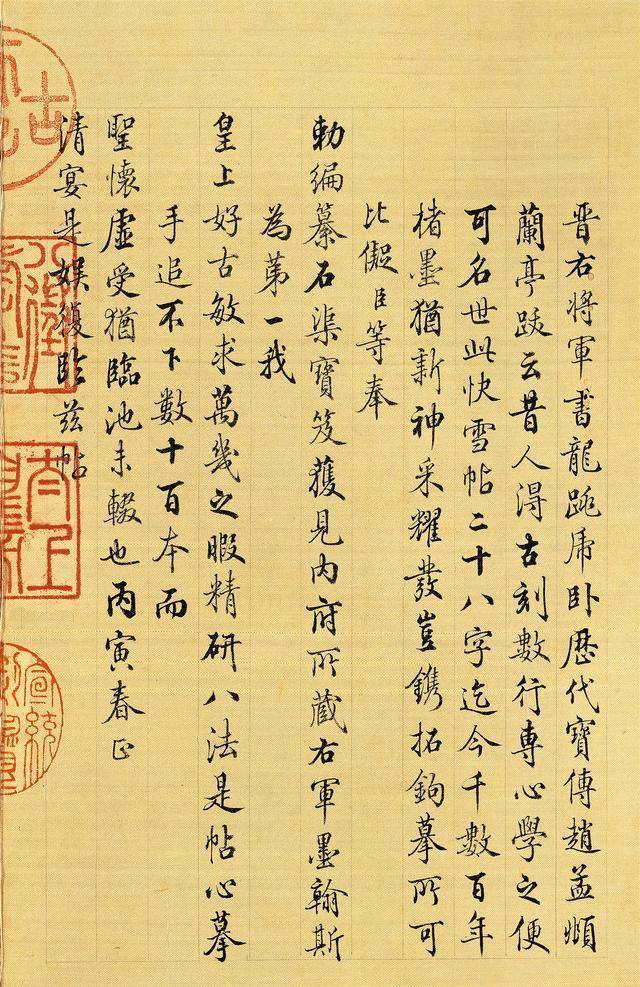 晉右將軍書龍跳虎臥歷代寶傳趙孟頫
蘭亭跋云昔人得古刻數行專心學之便
可名世此快雪帖二十八字迄今千數百年
楮墨猶新神采耀發豈鐫拓鉤摹所可
比儗臣等奉
勅編纂石渠寶笈獲見內府所藏右軍墨翰斯
為第一我
皇上好古敏求萬幾之暇精研八法是帖心摹
手追不下數十百本而
聖懷虛受猶臨池未輟也丙寅春正
清宴是娛復臨茲帖